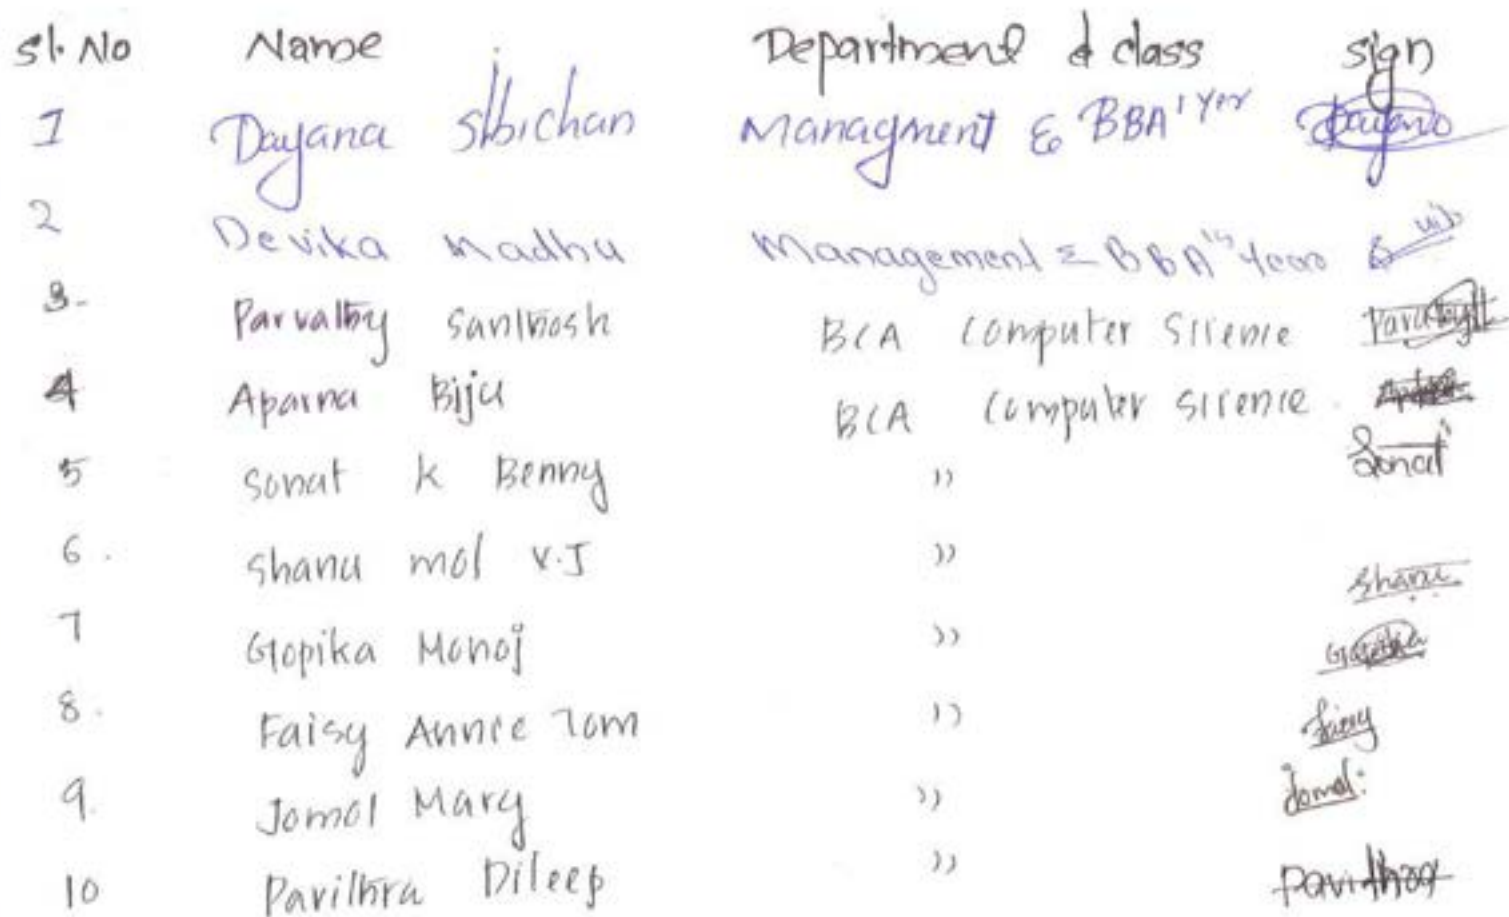 Sl. No Name Department & class Sign
1 Dayana Sibichan Managment & BBA 1 Yer Dayana
2 Devika Madhu Management & BBA 1st Year
3. Parvathy Santhosh BCA Computer Science
4 Aparna Biju BCA Computer Science
5 Sonat K Benny " Sonat
6. Shanu mol V.J " Shanu
7 Gopika Monoj " Gopika
8. Faisy Annie Tom " Faisy
9. Jomol Mary " Jomol:
10 Pavithra Dileep " Pavithra